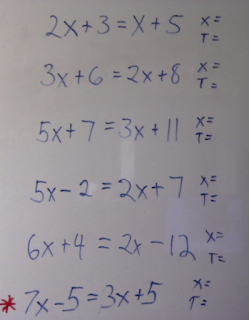 2x+3=x+5 x=
T=
3x+6=2x+8 x=
T=
5x+7=3x+11 x=
T=
5x-2=2x+7 x=
T=
6x+4=2x-12 x=
T=
* 7x-5=3x+5 x=
T=